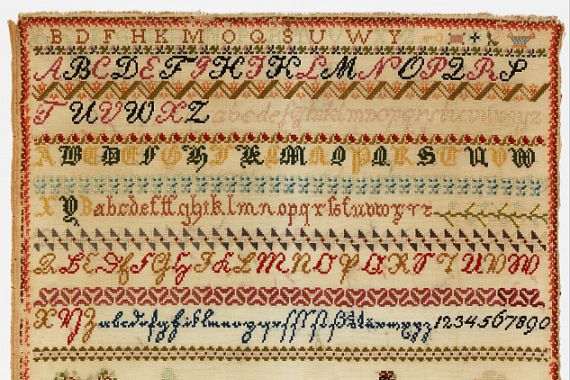 B D F H K M O Q S U W Y
A B C D E F G H I K L M N O P Q R S
T U V W X Z a b c d e f g h i k l m n o p q r s t u v w x y z
A B C D E F G H I K L M N O P Q R S T U V W
X Y Z a b c d e f f f g h i k l m n o p q r s ſ t u v w x y z
A B C D E F G H I K L M N O P Q R S T U V W
X Y Z a b c d e f g h i k l m n o p q r s t 1 2 3 4 5 6 7 8 9 0